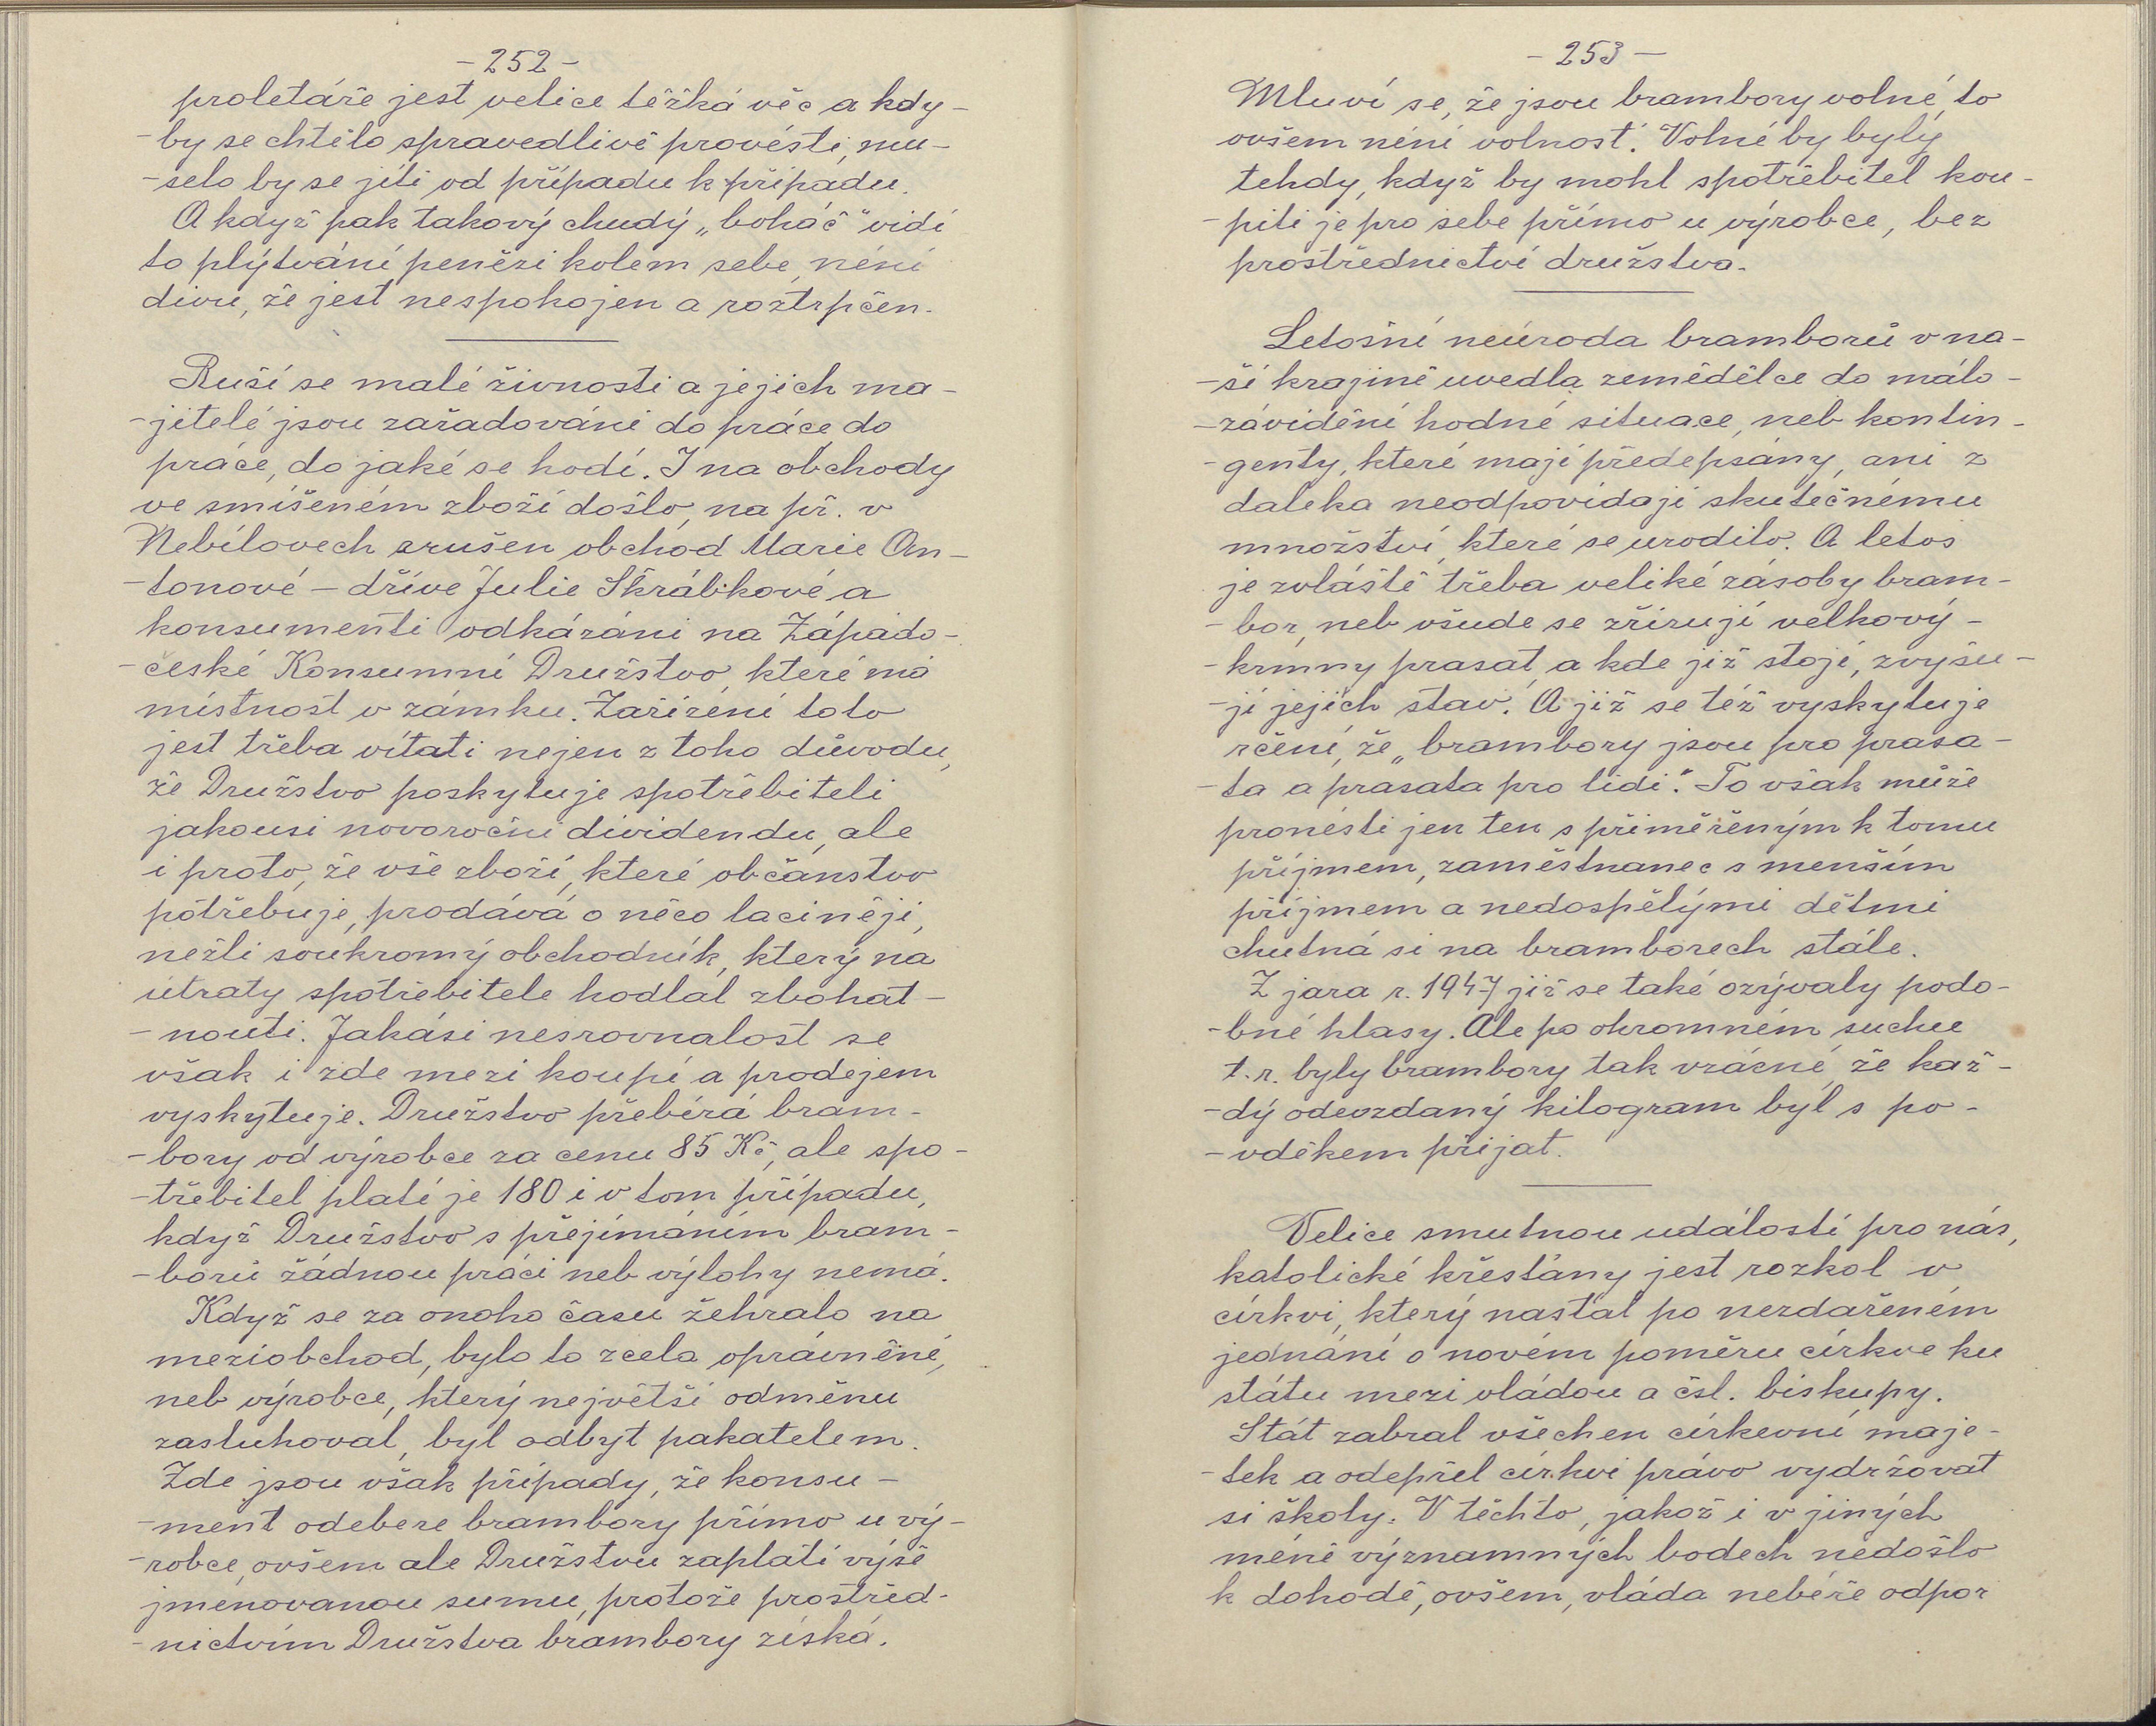 - 252 -
proletáře jest velice těžká věc a kdy-
-by se chtělo spravedlivě provésti, mu-
-selo by se jíti od případu k případu.
A když pak takový chudý „boháč" vidí
to plýtvání penězi kolem sebe, není
divu, že jest nespokojen a roztrpčen.
Ruší se malé živnosti a jejich ma-
-jitelé jsou zařadováni do práce, do
práce, do jaké se hodí. I na obchody
ve smíšeném zboží došlo, na př. v
Nebílovech zrušen obchod Marie An-
-tonové - dříve Julie Škrábkové, a
konsumenti odkázáni na Západo-
-české Konsumní Družstvo, které má
místnost v zámku. Zařízení toto
jest třeba vítati nejen z toho důvodu,
že Družstvo poskytuje spotřebiteli
jakousi novoroční dividendu, ale
i proto, že vše zboží, které občanstvo
potřebuje, prodává o něco laciněji,
nežli soukromý obchodník, který na
útraty spotřebitele hodlal zbohat-
-nouti. Jakási nesrovnalost se
však i zde mezi koupí a prodejem
vyskytuje. Družstvo přebírá bram-
-bory od výrobce za cenu 85 Kč, ale spo-
-třebitel platí je 180 i v tom případu,
když Družstvo s přejímáním bram-
-borů žádnou práci neb výlohy nemá.
Když se za onoho času žehralo na
meziobchod, bylo to zcela oprávněné,
neb výrobce, který největší odměnu
zasluhoval, byl odbyt pakatelem.
Zde jsou však případy, že konsu-
-ment odebere brambory přímo u vý-
-robce, ovšem ale Družstvu zaplatí výše
jmenovanou sumu, protože prostřed-
-nictvím Družstva brambory získá.
- 253 -
Mluví se, že jsou brambory volné, to
ovšem není volnost. Volné by byly
tehdy, když by mohl spotřebitel kou-
-piti je pro sebe přímo u výrobce, bez
prostřednictví družstva.
Letošní neúroda bramborů v na-
-ší krajině uvedla zemědělce do málo-
-závidění hodné situace, neb kontin-
-genty, které mají předepsány, ani z
daleka neodpovídají skutečnému
množství, které se urodilo. A letos
je zvláště třeba veliké zásoby bram-
-bor, neb všude se zřizují velkový-
-krmny prasat, a kde již stojí, zvyšu-
-jí jejich stav. A již se též vyskytuje
rčení, že „brambory jsou pro prasa-
-ta a prasata pro lidi". To však může
pronésti jen ten s přiměřeným k tomu
příjmem, zaměstnanec s menším
příjmem a nedospělými dětmi
chutná si na bramborech stále.
Z jara r. 1947 již se také ozývaly podo-
-bné hlasy. Ale po ohromném suchu
t. r. byly brambory tak vzácné, že kaž-
-dý odevzdaný kilogram byl s po-
-vděkem přijat.
Velice smutnou událostí pro nás,
katolické křesťany jest rozkol v
církvi, který nastal po nezdařeném
jednání o novém poměru církve ku
státu mezi vládou a čsl. biskupy.
Stát zabral všechen církevní maje-
-tek a odepřel církvi právo vydržovat
si školy. V těchto, jakož i v jiných
méně významných bodech nedošlo
k dohodě, ovšem, vláda nebéře odpor